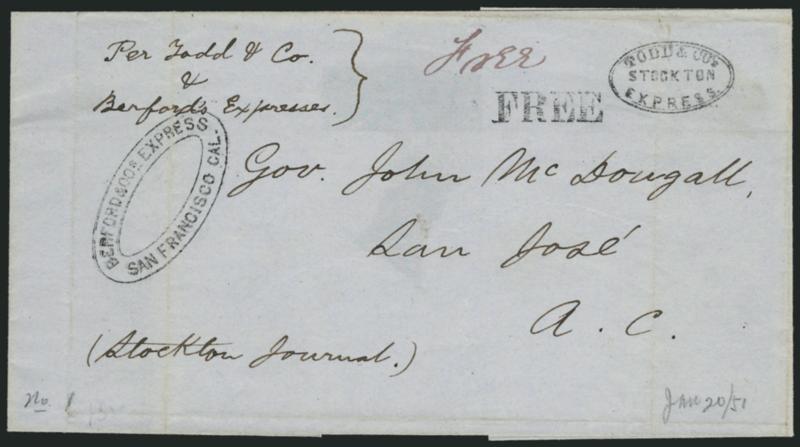 Per Todd & Co.
&
Berford's Expresses.
Free
FREE
TODD & CO'S
STOCKTON
EXPRESS.
BERFORD & CO'S EXPRESS
SAN FRANCISCO CAL.
Gov. John McDougall,
San José
A. C.
(Stockton Journal.)
No. 1
Jan 20/51